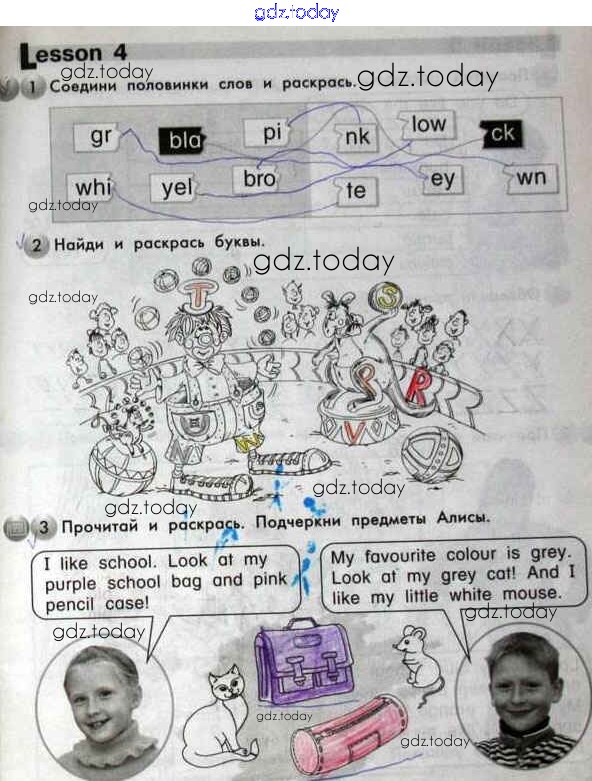 gdz.today
Lesson 4
gdz.today
1 Соедини половинки слов и раскрась.
gdz.today
gr bla pi nk low ck
whi yel bro te ey wn
gdz.today
2 Найди и раскрась буквы.
gdz.today
gdz.today
T
S
P R
U
N W V
gdz.today
gdz.today
3 Прочитай и раскрась. Подчеркни предметы Алисы.
I like school. Look at my
purple school bag and pink
pencil case!
My favourite colour is grey.
Look at my grey cat! And I
like my little white mouse.
gdz.today
gdz.today
gdz.today
gdz.today